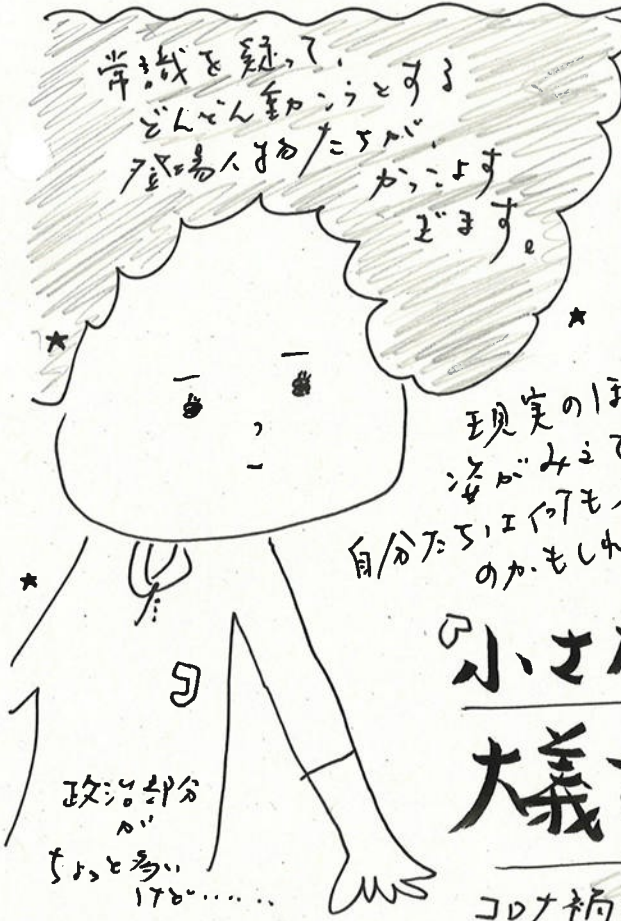 常識を疑って、
どんどん動こうとする
登場人物たちが、
かっこよす
ぎます。
現実のほ
姿がみえて
自分たちは何も
のかもしれ
『小さな
大義
コロナ禍
政治部分
が
ちょっと多い
けど……